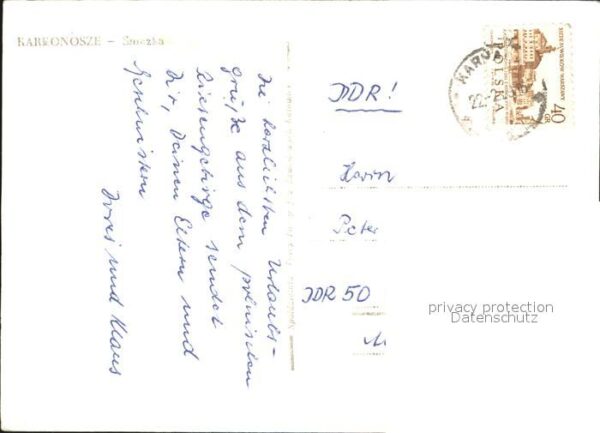 KARKONOSZE – Śnieżka
Die herzlichsten Urlaubs-
grüße aus dem polnischen
Riesengebirge sendet
Dir, Deinen Eltern und
Geschwistern
und Klaus
DDR!
Herrn
Peter
DDR 50
POLSKA
40
GR
KARP
22-2
privacy protection
Datenschutz